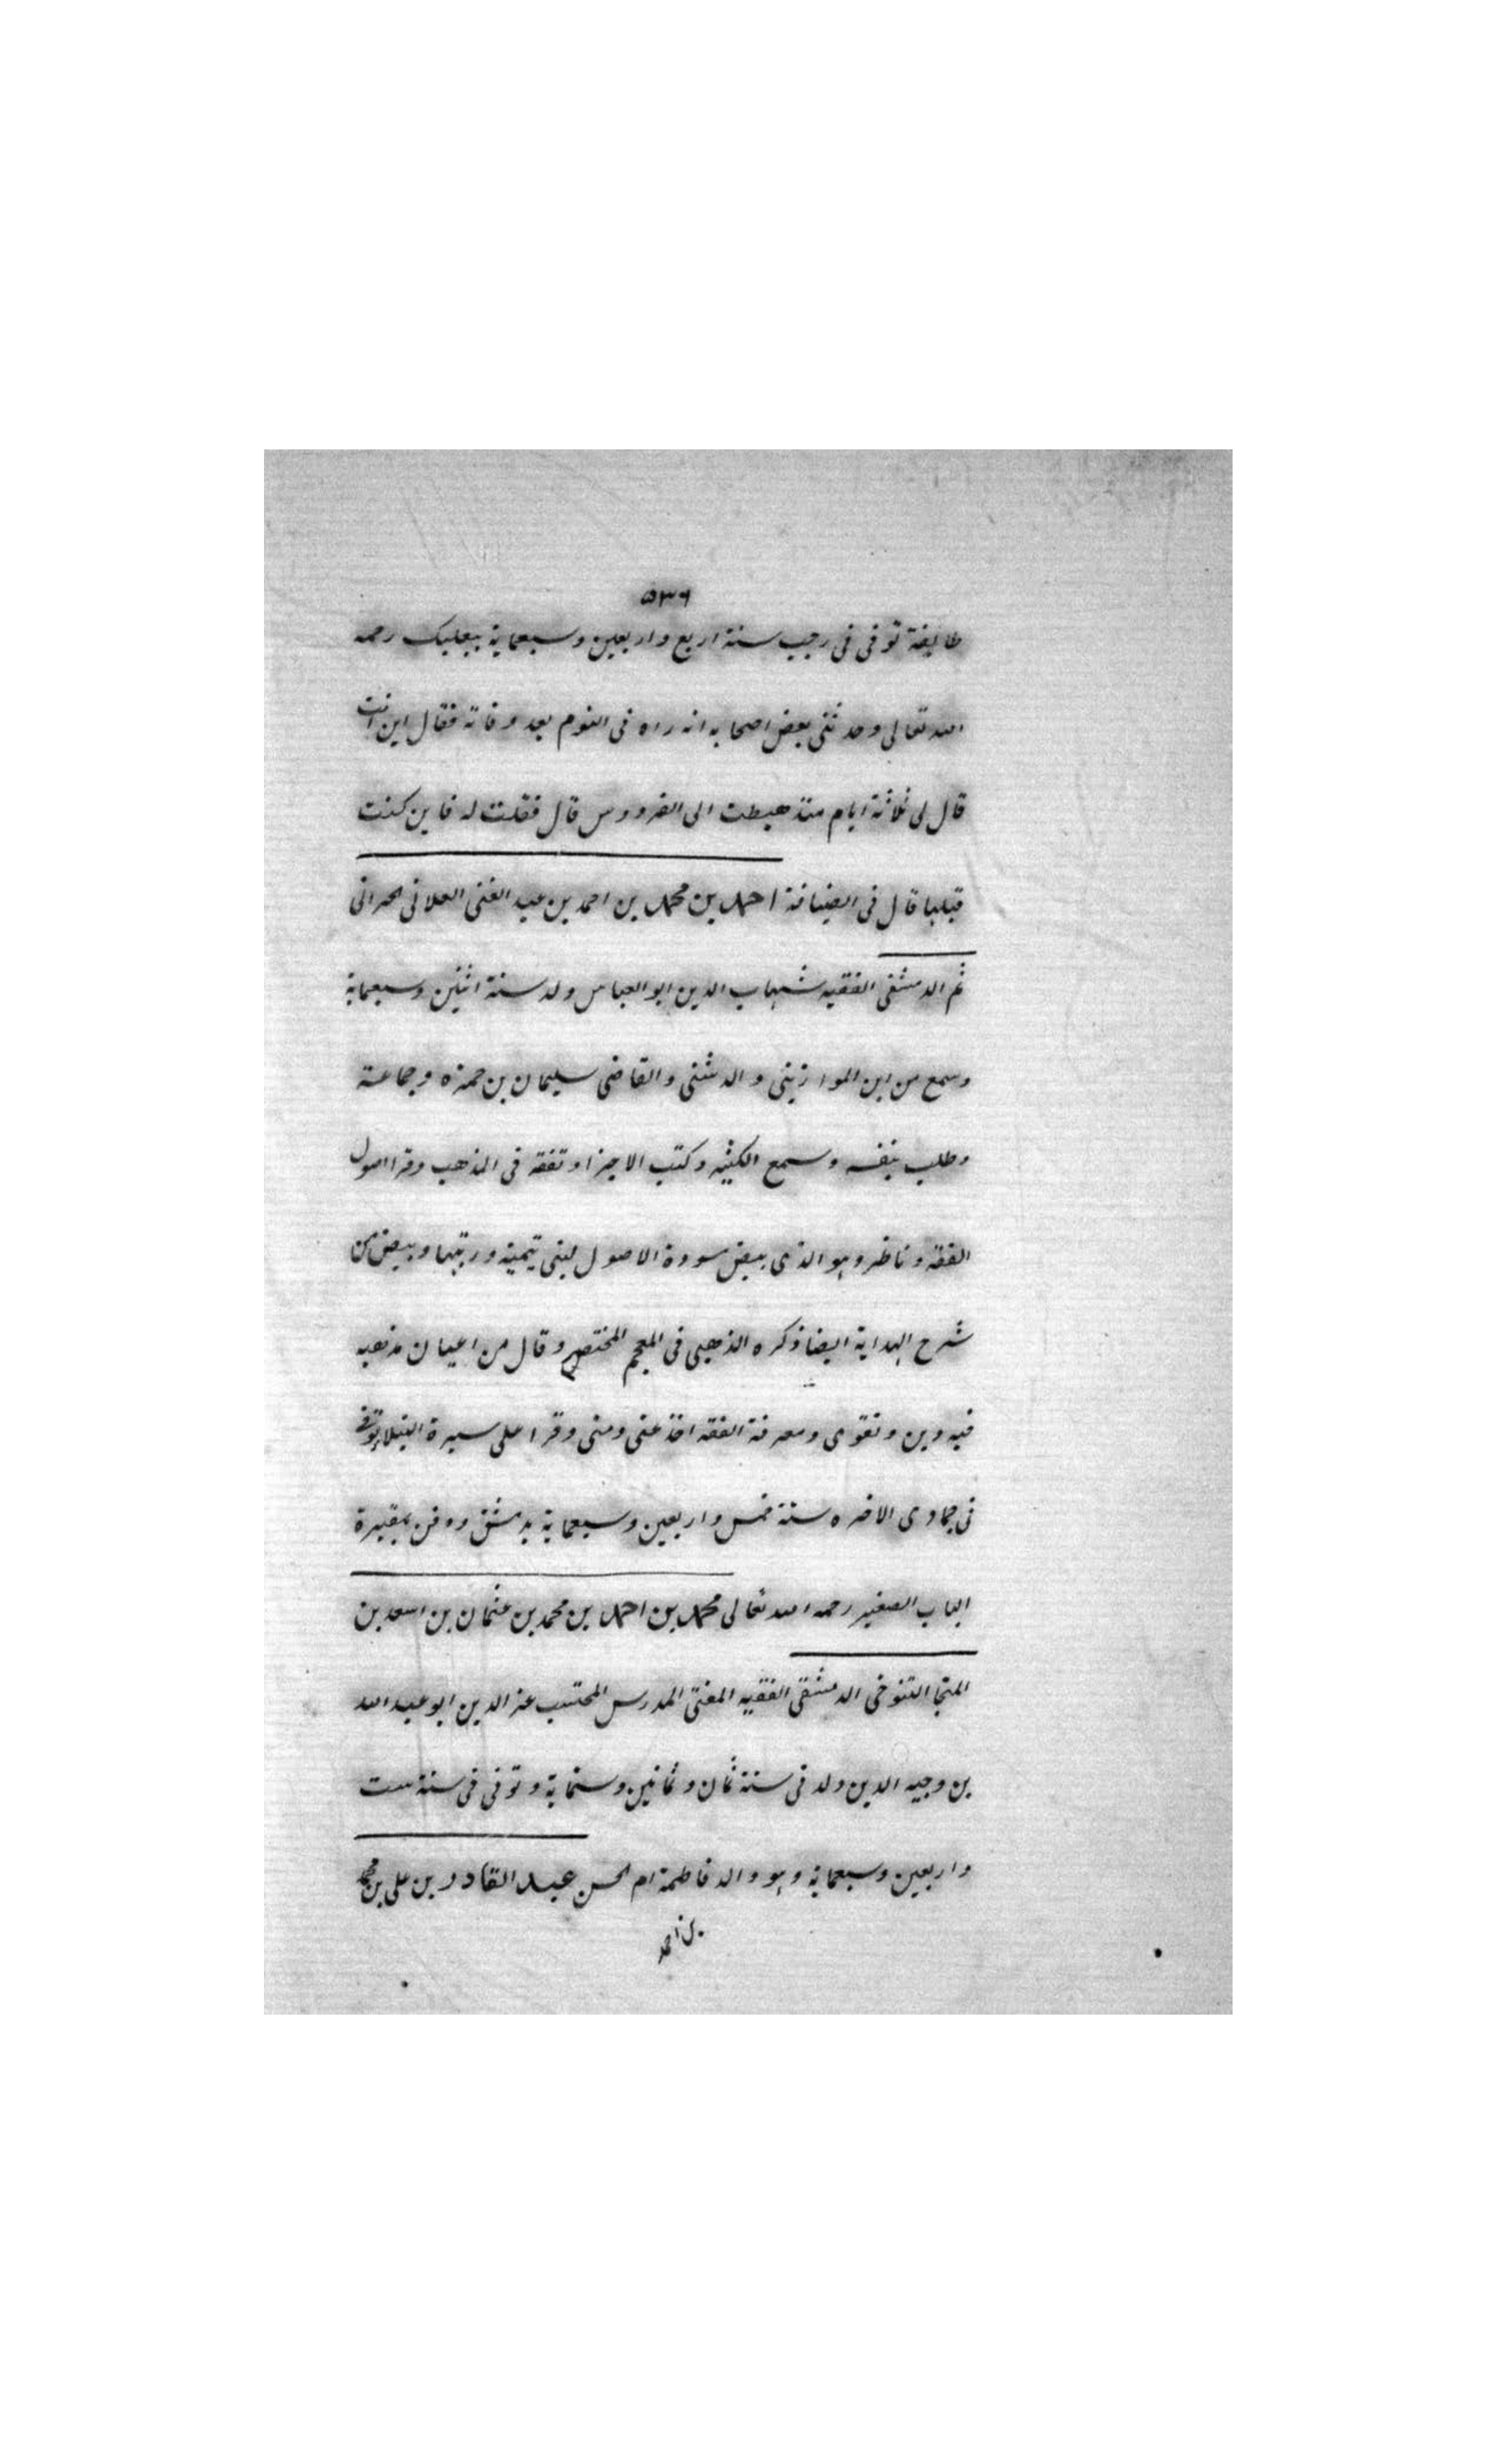 ٥٣٦
طايفة توفى فى رجب سنة اربع واربعين وسبعماية ببعلبك رحمه
الله تعالى وحدثنى بعض اصحابه انه راه فى النوم بعد وفاته فقال اين انت
قال لى ثلاثة ايام منذ هبطت الى الفردوس قال فقلت له فاين كنت
قبلها قال فى الضيافة احمد بن محمد بن احمد بن عبد الغنى العلانى الحرانى
ثم الدمشقى الفقيه شهاب الدين ابو العباس ولد سنة اثنين وسبعماية
وسمع من ابن الموازينى والدشتى والقاضى سليمان بن حمزه وجماعة
وطلب بنفسه وسمع الكثير وكتب الاجزا وتفقه فى المذهب وقرا اصول
الفقه وناظر وهو الذى بيض مسودة الاصول لبنى تيمية ورتبها وبيض من
شرح الهداية ايضا ذكره الذهبى فى المعجم المختصر وقال من اعيان مذهبه
فيه دين وتقوى ومعرفة الفقه اخذ عنى ومنى وقرا على سيرة النبلا توفى
فى جمادى الاخره سنة خمس واربعين وسبعماية بدمشق ودفن بمقبرة
الباب الصغير رحمه الله تعالى محمد بن احمد بن محمد بن عثمان بن اسعد بن
المنجا التنوخى الدمشقى الفقيه المفتى المدرس المحتسب عز الدين ابو عبد الله
بن وجيه الدين ولد فى سنة ثمان وثمانين وستماية وتوفى فى سنة ست
واربعين وسبعماية وهو والد فاطمة ام الحسن عبد القادر بن على بن محمد
بن احمد